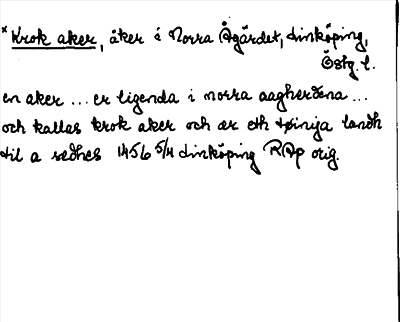 * Krok aker, åker i Norra Ågärdet, Linköping,
Östg. l.
en aker ... er ligenda i norra aagherdena ...
och kallas krok aker och ær eth tøinija landh
til a sædhes 1456 5/4 Linköping RAp orig.